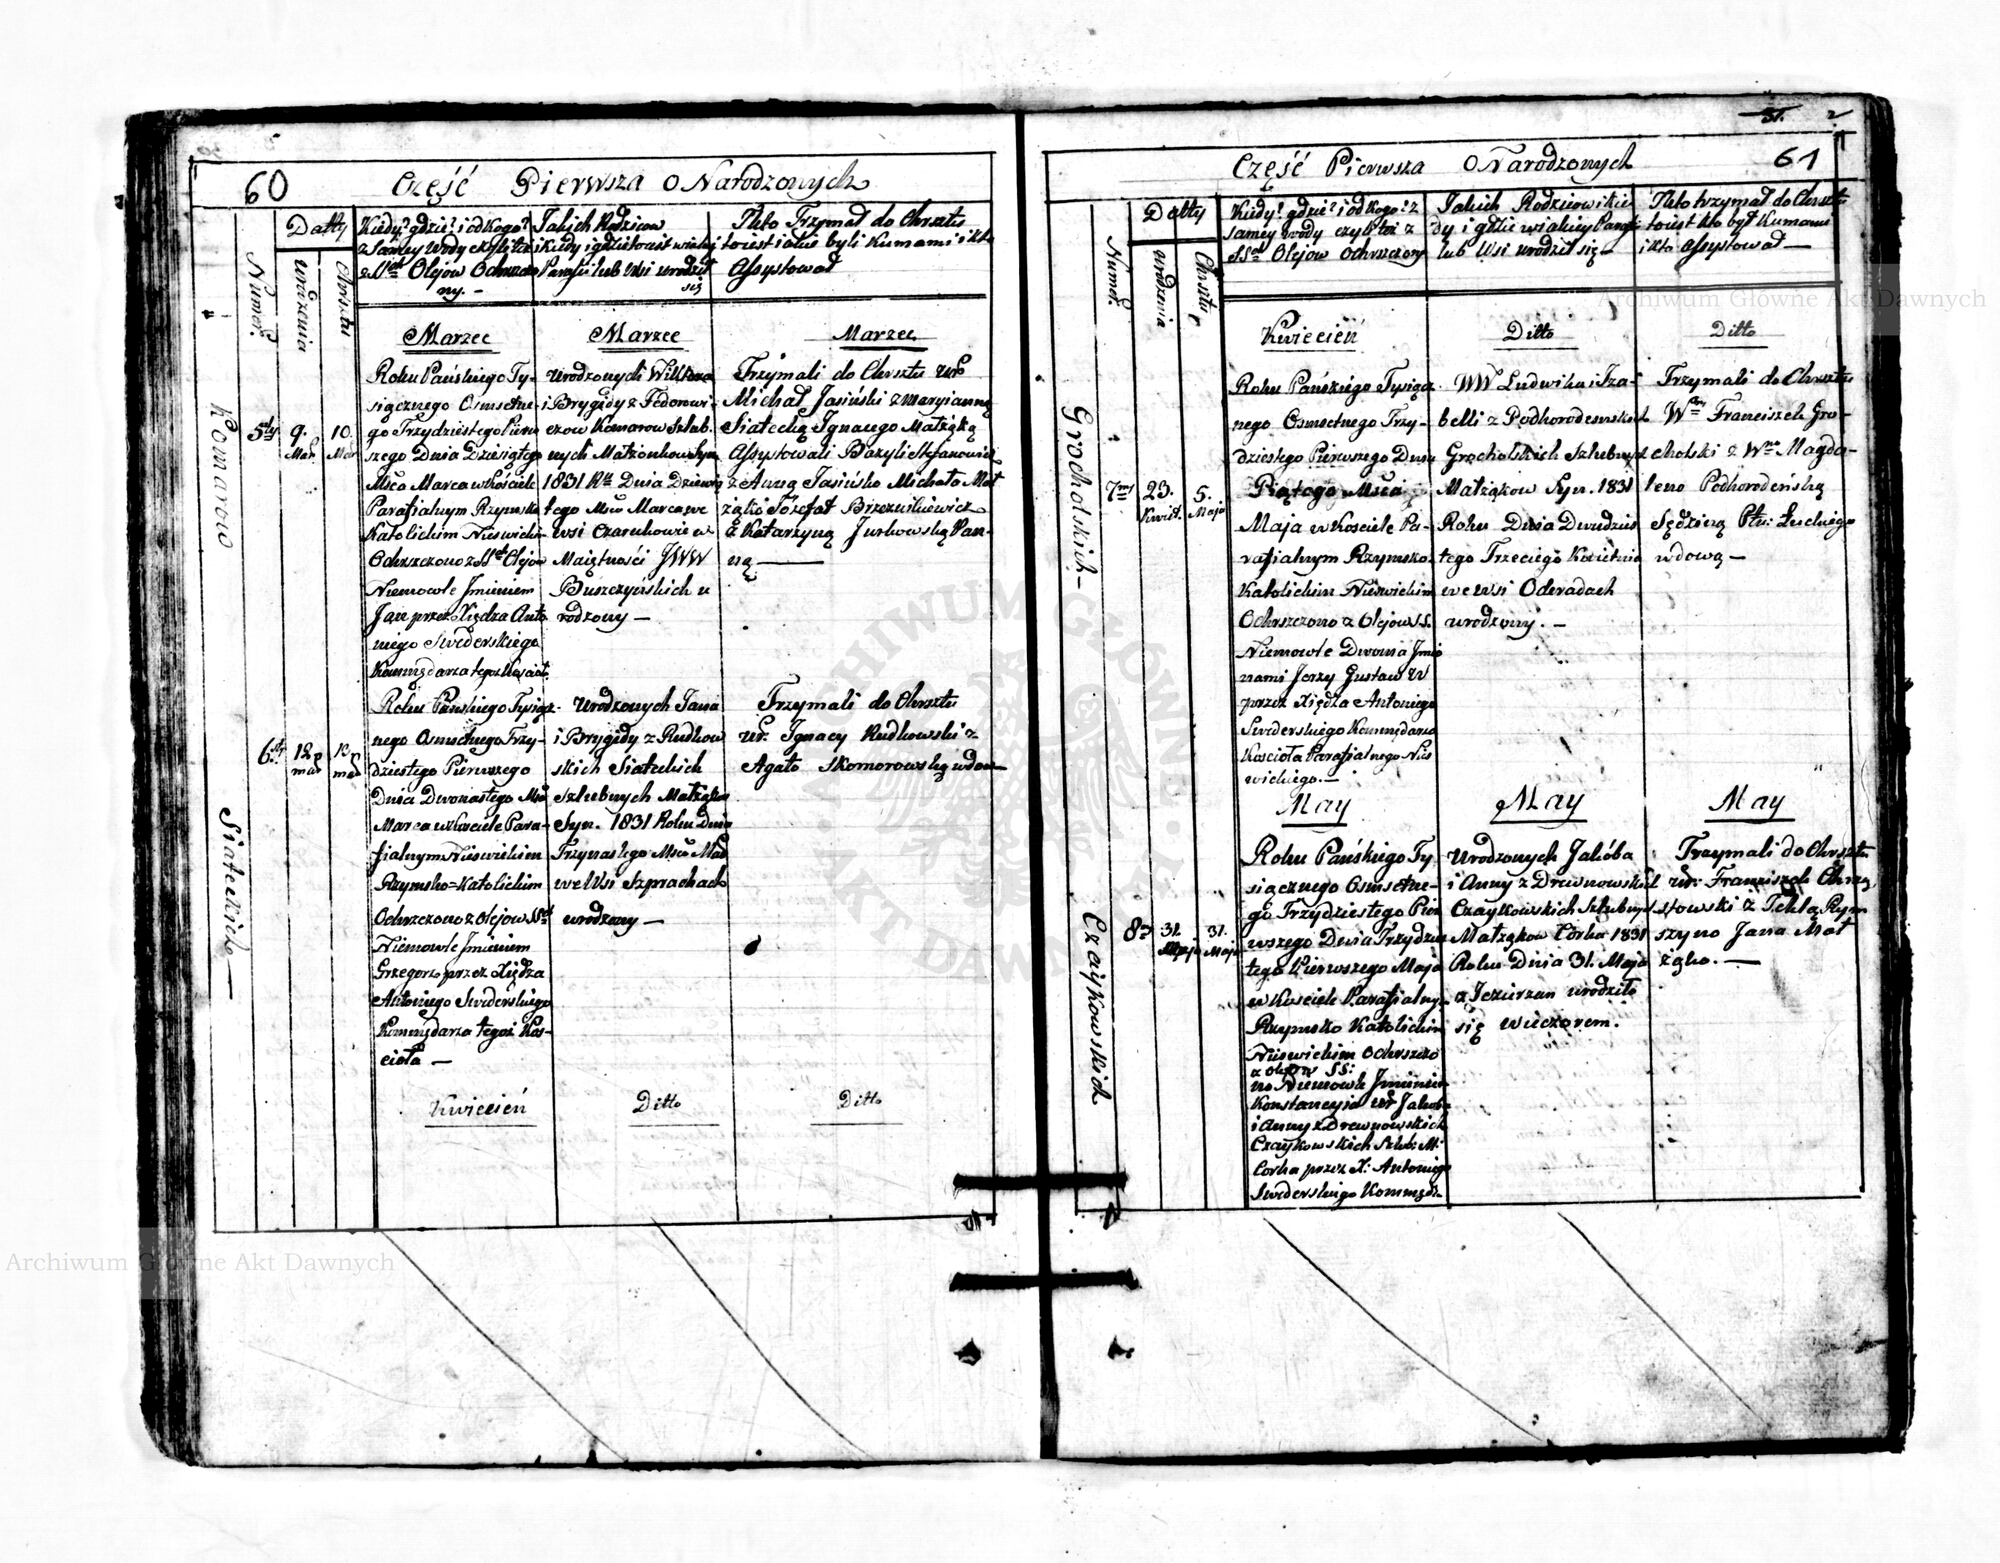 60
Część Pierwsza o Narodzonych
Numer.
Datty
urodzenia
Chrztu
Kiedy? gdzie? i od kogo?
z samey wody czyli też
z Olejow Ochrzczo
ny. —
Jakich Rodzicow
i kiedy i gdzie to iest w iakiey
Parafii lub Wsi urodził
się
Kto Trzymał do Chrztu
to iest iakie byli Kumami i kto
Assystował
Komarow
5ty
9.
Mar
10.
Mar
Marzec
Roku Pańskiego Ty-
siącznego Osmsetne-
go Trzydziestego Pierw
szego Dnia Dziesiątego
Msca Marca w Kościele
Parafialnym Rzymsko
Katolickim Nieswickim
Ochrzczono z Olejow
Niemowle Jmieniem
Jan przez Xiędza Anto
niego Swiderskiego
Kommędarza tegoż Kościoł.
Marzec
Urodzonych Wiktora
i Brygidy z Fedorowi-
czow Komarow Szlub.
nych Małżonkow Syn
1831 Rku Dnia Dziewią
tego Msca Marca we
wsi Czarukowie w
Maiętności JWW
Buszczyńskich u
rodzony —
Marzec
Trzymali do Chrztu Ur
Michał Jasiński z Maryianną
Siatecką Ignacego Małżąką
Assystowali Bazyli Stefanowicz
z Anną Jasińską Michała Mał
żąką Józefat Brzezuskiewicz
z Katarzyną Jurkowską Pan-
ną —
Siateckich —
6ty
12
mar
mar
Roku Pańskiego Tysiąc
nego Osmsetnego Trzy-
dziestego Pierwszego
Dnia Dwonastego Msca
Marca w Kosciele Para-
fialnym Nieswickim
Rzymsko=Katolickim
Ochrzczono z Olejow
Niemowle Jmieniem
Grzegorz przez Xiędza
Antoniego Swiderskiego
Kommędarza tegoż Kos-
cioła —
Urodzonych Jana
i Brygidy z Rudkow
skich Siateckich
Szlubnych Małżąkow
Syn. 1831 Roku Dnia
Trzynastego Msca Mar
we Wsi Szprachach
urodzony —
Trzymali do Chrztu
Ur. Ignacy Rudkowski z
Agatą Skomorowską wdow—
Kwiecień
Ditto
Ditto
61
Część Pierwsza o Narodzonych
Numer.
Datty
urodzenia
Chrztu
Kiedy? gdzie? i od kogo? z
samey wody czyli też z
Olejow ochrzczony
Jakich Rodzicow i kie
dy i gdzie w iakiey Parafi
lub Wsi urodził się —
Kto trzymał do Chrztu
to iest kto był Kumami
i kto Assystował —
Grochalskich —
7my
23.
Kwiet.
5.
Maja
Kwiecień
Roku Pańskiego Tysiącz
nego Osmsetnego Trzy-
dziestego Pierwszego Dnia
Piątego Msca
Maja w Kosciele Pa-
rafialnym Rzymsko.
Katolickim Nieswickim
Ochrzczono z Olejow SS.
Niemowle Dwoma Jmio
nami Jerzy Gustaw
przez Xiędza Antoniego
Swiderskiego Kommędarza
Koscioła Parafialnego Nies
wickiego. —
Ditto
WW Ludwika i Iza-
belli z Podhorodenskich
Grocholskich Szlubnych
Małżąkow Syn. 1831
Roku Dnia Dwudzies
tego Trzeciego Kwietnia
we Wsi Oderadach
urodzony. —
Ditto
Trzymali do Chrztu
W Franciszek Gro-
cholski z W Magda-
leną Podhorodeńską
Sędziną Ptu: Łuckiego
wdową —
Czaykowskich
8
31.
Maja
31.
Maja
May
Roku Pańskiego Ty
siącznego Osmsetne-
go Trzydziestego Pier
wszego Dnia Trzydzies
tego Pierwszego Maja
w Kosciele Parafialny
Rzymsko Katolickim
Nieswickim Ochrzczo
z Olejow SS:
no Niemowle Jmieniem
Konstancyia Ur Jakuba
i Anny z Drewnowskich
Czaykowskich Szlub: M:
Corka przez X: Antoniego
Swiderskiego Kommęda
May
Urodzonych Jakóba
i Anny z Drewnowskich
Czaykowskich Szlubnych
Małżąkow Corka 1831
Roku Dnia 31. Maja
z Jezierzan urodziła
się wieczorem.
May
Trzymali do Chrztu
Ur: Franciszek Chrzą
stowski z Teklą Rym
szyną Jana Mał
żąką. —
Archiwum Główne Akt Dawnych
Archiwum Główne Akt Dawnych
ARCHIWUM GŁÓWNE AKT DAWNYCH